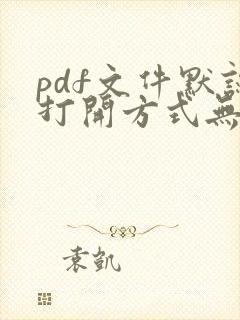 pdf文件默認
打開方式無
袁凱